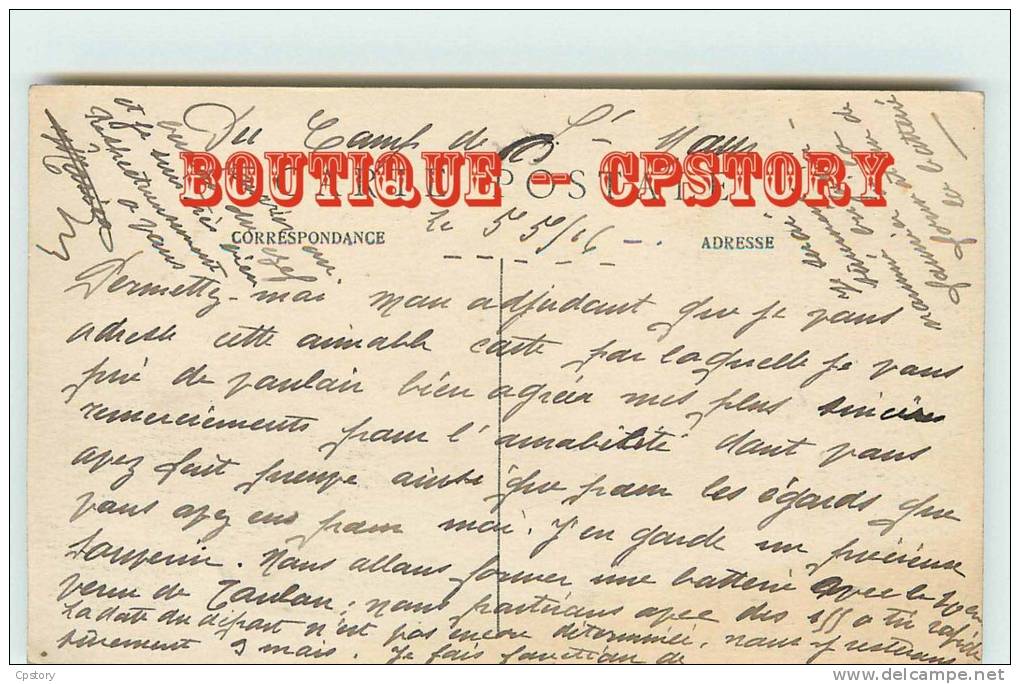 Du Camp de St Maur
BOUTIQUE -- CPSTORY
CARTE POSTALE
le 5 5/16
CORRESPONDANCE
ADRESSE
Permettez-moi mon adjudant que je vous
adresse cette aimable carte par laquelle je vous
prie de vouloir bien agréer mes plus sincères
remerciements pour l'amabilité dont vous
avez fait preuve ainsi que pour les égards que
vous avez eus pour moi. J'en garde un précieux
souvenir. Nous allons former une batterie avec le
venu de Toulon; nous partirons avec des 155 a tir rapide
la date du départ n'est pas encore déterminée, nous y resterons
sûrement 3 mois. Je fais fonction de
et je suis très bien
Respectueusement
a vous
Cpstory
delcampe.net